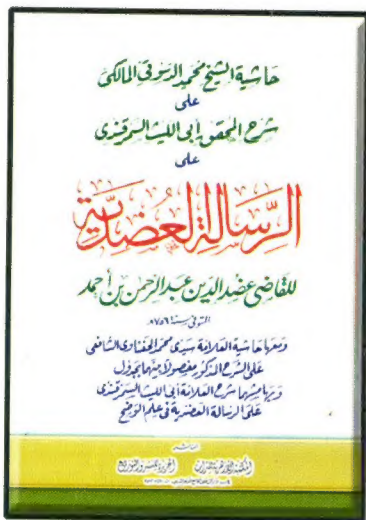 حاشية الشيخ محمد الدسوقي المالكي
على
شرح المحقق أبي الليث السمرقندي
على
الرسالة العضدية
للقاضي عضد الدين عبد الرحمن بن أحمد
المتوفى سنة ٧٥٦هـ
ومعها حاشية العلامة سيدي محمد الحفناوي الشافعي
على الشرح المذكور مفصولا بينهما بجدول
وبهامشها شرح العلامة أبي الليث السمرقندي
على الرسالة العضدية في علم الوضع
الناشر
المكتبة الأزهرية للتراث